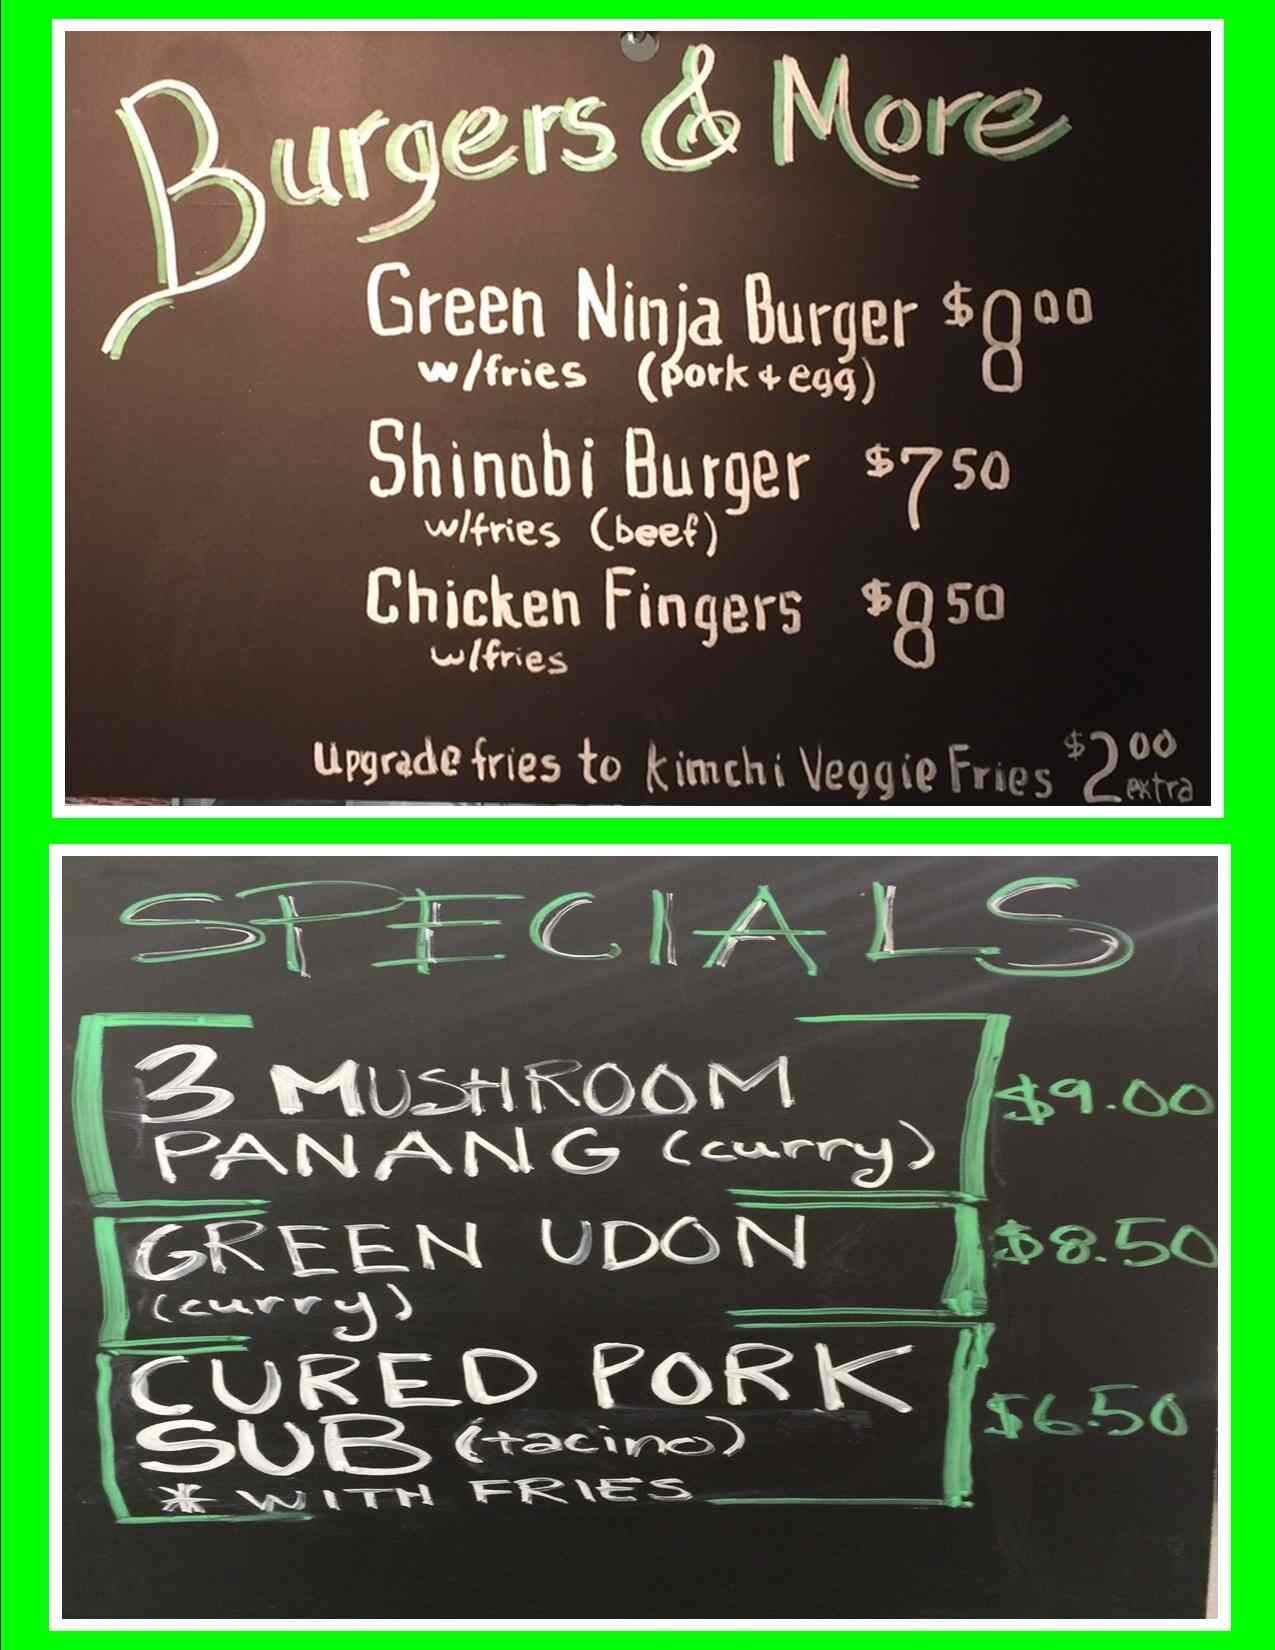 Burgers & More
Green Ninja Burger $8.00
w/fries (pork + egg)
Shinobi Burger $7.50
w/fries (beef)
Chicken Fingers $8.50
w/fries
Upgrade fries to Kimchi Veggie Fries $2.00 extra
SPECIALS
3 MUSHROOM
PANANG (curry) $9.00
GREEN UDON $8.50
(curry)
CURED PORK
SUB (tacino) $6.50
* WITH FRIES